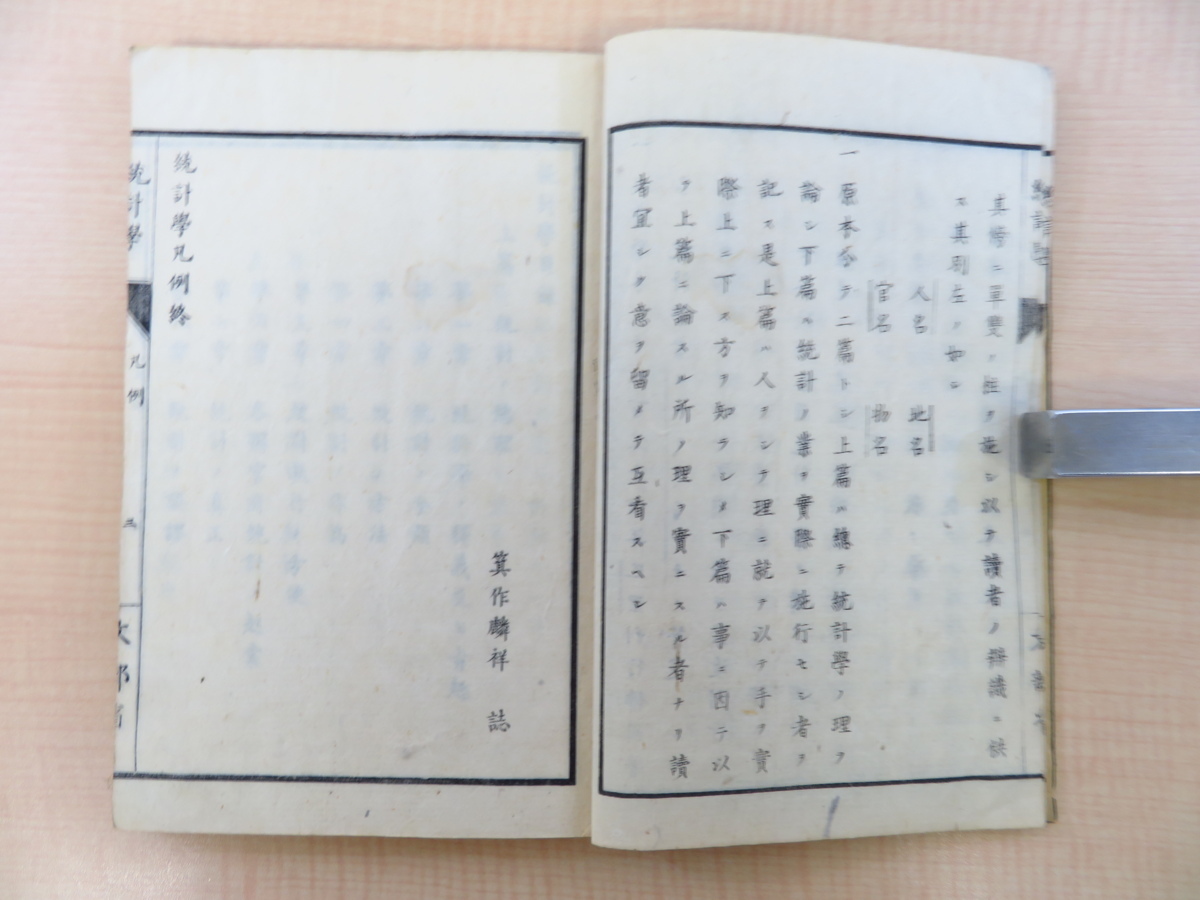 其傍ニ單雙ノ柱ヲ施シ以テ讀者ノ辨識ニ供
ス其別左ノ如シ
人名 地名
官名 物名
一 原本分テ二篇トシ上篇ハ總テ統計學ノ理ヲ
論シ下篇ハ統計ノ業ヲ實際ニ施行セシ者ヲ
記ス是上篇ハ人ヲシテ理ニ就テ以テ手ヲ實
際上ニ下ス方ヲ知ラシメ下篇ハ事ニ因テ以
テ上篇ニ論スル所ノ理ヲ實ニスル者ナリ讀
者宜シク意ヲ留メテ互看スヘシ
箕作麟祥 誌
統計學凡例終
統計學 凡例 三 文部省